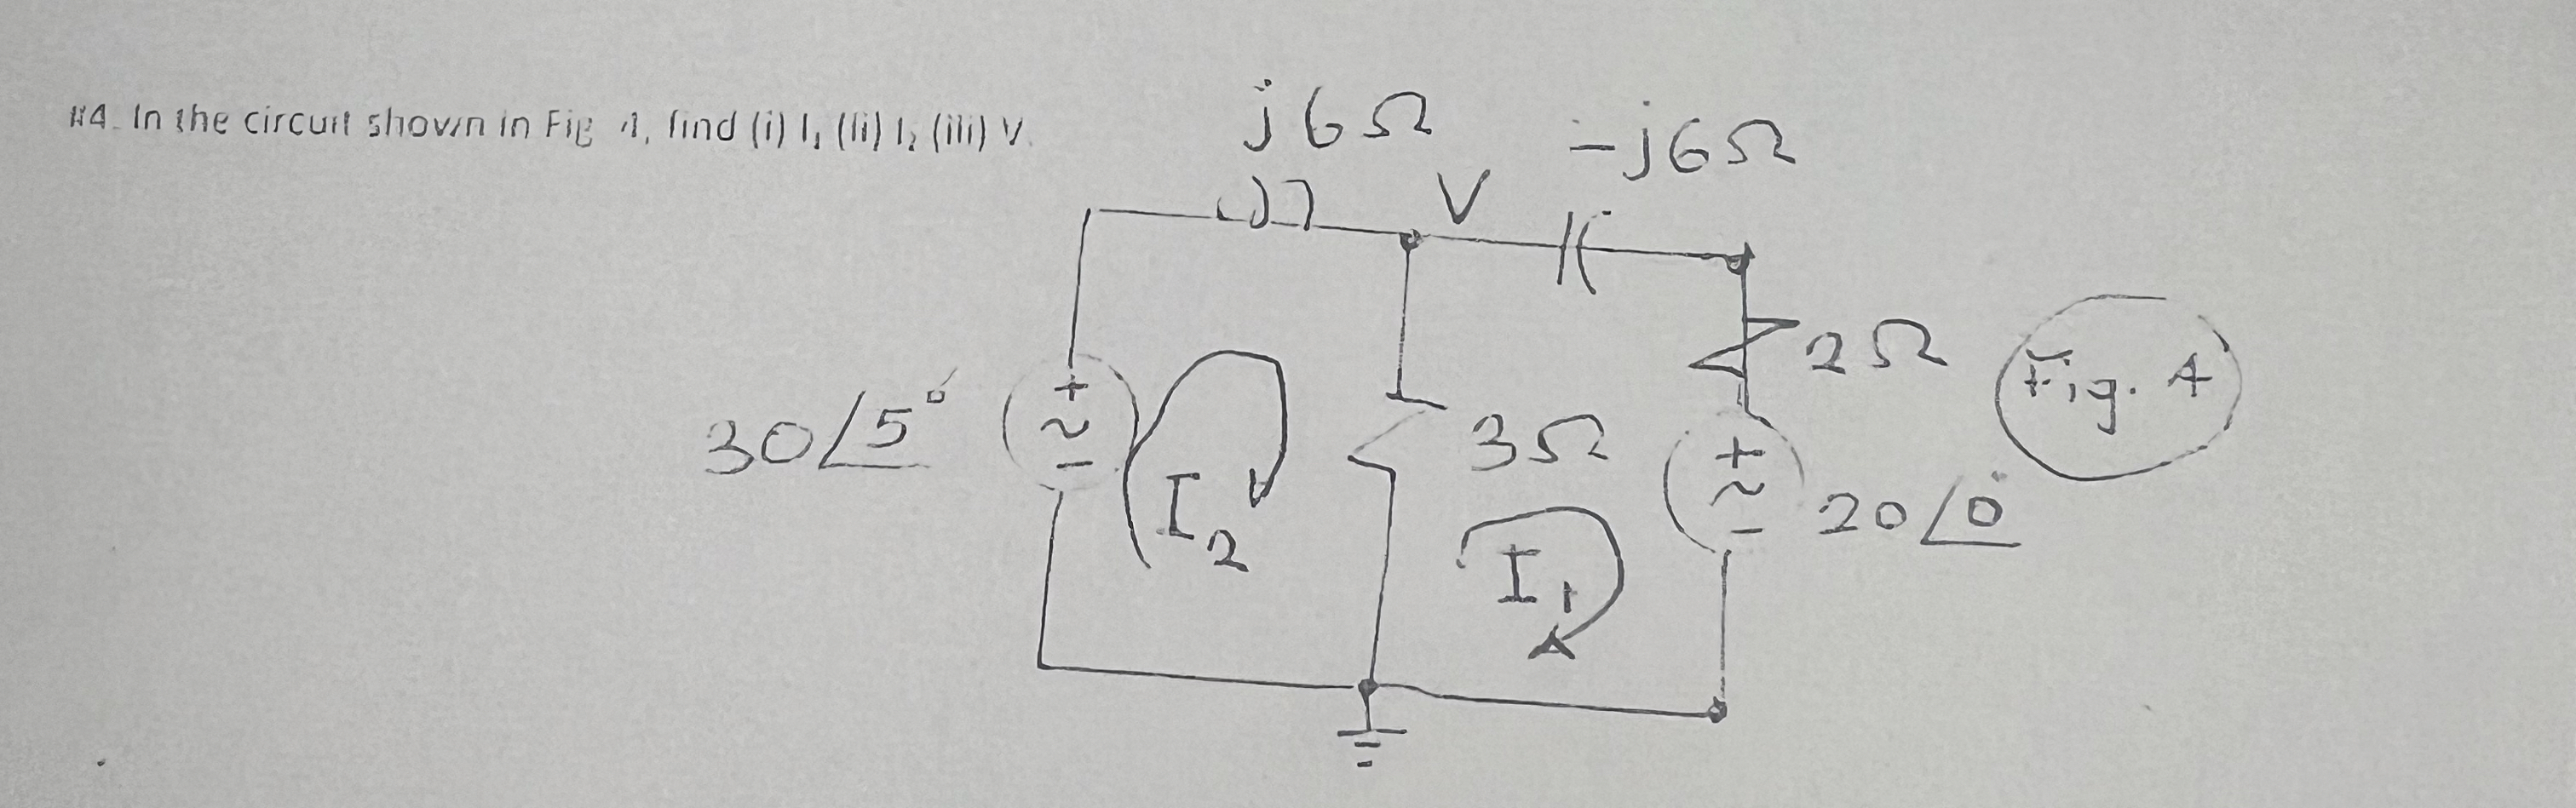 #4. In the circuit shown in Fig 4, find (i) I₁ (ii) I₂ (iii) V.
j6Ω
-j6Ω
V
+
~
-
30∠5°
I₂
3Ω
I₁
2Ω
+
~
-
20∠0°
Fig. 4